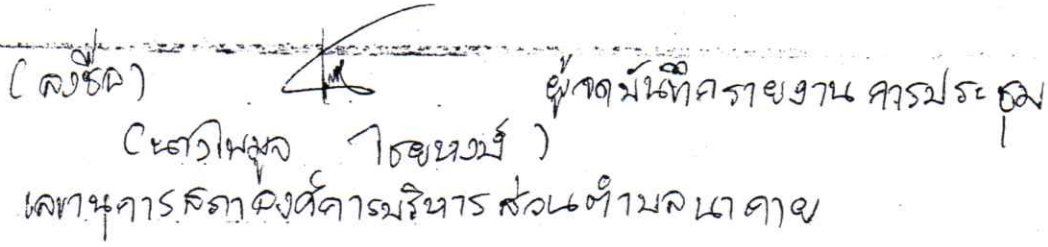 (ลงชื่อ) ผู้จดบันทึกรายงานการประชุม
( ไชยหงษ์ )
เลขานุการสภาองค์การบริหารส่วนตำบลนาคาย